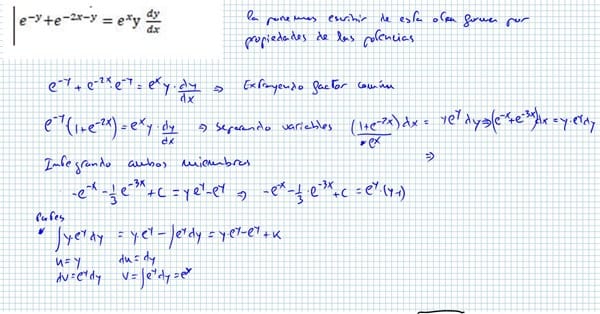 e^{-y}+e^{-2x-y} = e^x y dy/dx
la podemos escribir de esta otra forma por
propiedades de las potencias
e^{-y} + e^{-2x}·e^{-y} = e^x y · dy/dx ⇒ Extrayendo factor común
e^{-y}(1+e^{-2x}) = e^x y · dy/dx ⇒ separando variables (1+e^{-2x})/e^x dx = y e^y dy ⇒ (e^{-x}+e^{-3x})dx = y·e^y dy
⇒
Integrando ambos miembros
-e^{-x} - 1/3 e^{-3x} + C = y e^y - e^y ⇒ -e^{-x} - 1/3 · e^{-3x} + C = e^y·(y-1)
Partes
∫ y e^y dy = y e^y - ∫ e^y dy = y·e^y - e^y + K
u=y du=dy
dv=e^y dy v=∫e^y dy=e^y